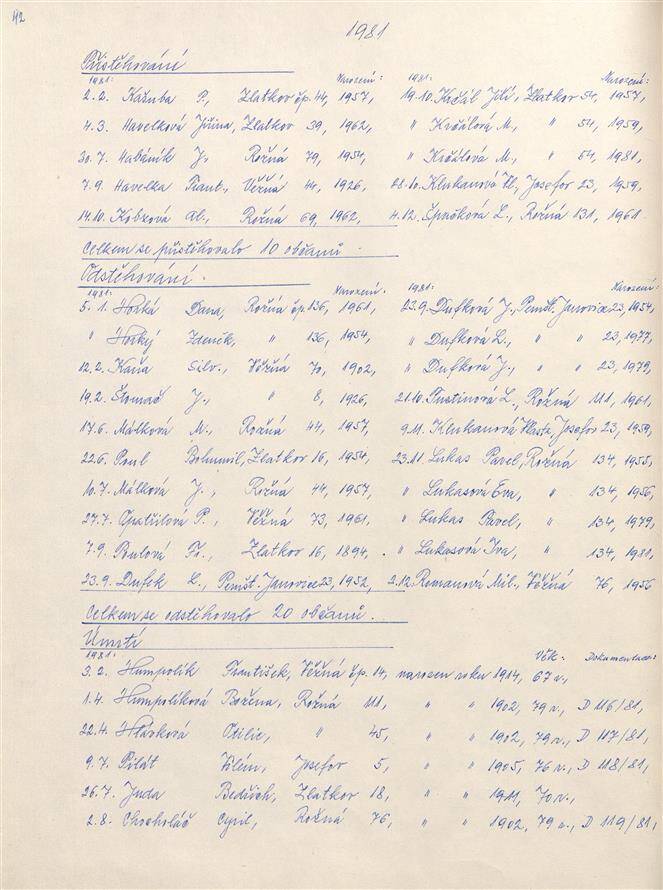 42
1981
Přistěhování
1981: Narození: 1981: Narození:
2.2. Kašuba P., Zlatkov čp. 44, 1957, 19.10. Krčál Jiří, Zlatkov 54, 1957,
4.3. Havelková Jiřina, Zlatkov 39, 1962, " Krčálová M., " 54, 1959,
30.7. Habáník J., Rožná 79, 1954, " Krčálová M., " 54, 1981,
7.9. Havelka Frant., Věžná 44, 1926, 28.10. Klukanová Vl., Josefov 23, 1959,
14.10. Kobzová Al., Rožná 69, 1962, 4.12. Špačková L., Rožná 131, 1961.
Celkem se přistěhovalo 10 občanů.
Odstěhování.
1981: Narození. 1981: Narození:
5.1. Horká Dana, Rožná čp. 136, 1961, 23.9. Dufková J., Pernšt. Janovice 23, 1954,
" Horký Zdeněk, " 136, 1954, " Dufková L., " " 23, 1977,
12.2. Kaňa Silv., Věžná 70, 1902, " Dufková J., " " 23, 1979,
19.2. Štomač J., " 8, 1926, 21.10. Fustinová L., Rožná 111, 1961,
17.6. Málková M., Rožná 44, 1957, 9.11. Klukanová Vlasta, Josefov 23, 1959,
22.6. Poul Bohumil, Zlatkov 16, 1954, 23.11. Lukas Pavel, Rožná 134, 1955,
10.7. Málková J., Rožná 44, 1957, " Lukasová Eva, " 134, 1956,
27.7. Opatřilová P., Věžná 73, 1961, " Lukas Pavel, " 134, 1979,
7.9. Poulová Fr., Zlatkov 16, 1894. " Lukasová Iva, " 134, 1981,
23.9. Dufek L., Pernšt. Janovice 23, 1952, 2.12. Romanová Mil., Věžná 76, 1956
Celkem se odstěhovalo 20 občanů.
Úmrtí
1981: Věk: Dokumentace:
3.2. Humpolík František, Věžná čp. 14, narozen roku 1914, 67 r.,
1.4. Humpolíková Božena, Rožná 111, " " 1902, 79 r., D 116/81,
22.4. Hláská Otilie, " 45, " " 1902, 79 r., D 117/81,
9.7. Pilát Vilém, Josefov 5, " " 1905, 76 r., D 118/81,
26.7. Juda Bedřich, Zlatkov 18, " " 1911, 70 r.,
2.8. Chocholáč Cyril, Rožná 76, " " 1902, 79 r., D 119/81,